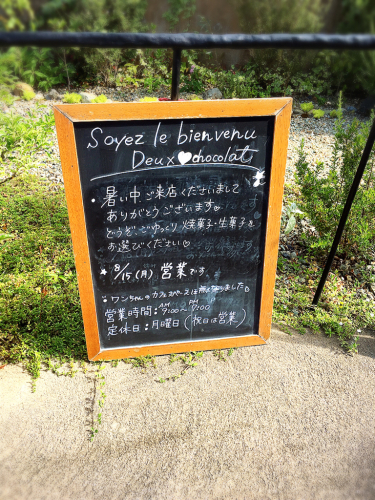 Soyez le bienvenu
Deux♥chocolat
・暑い中ご来店くださいまして
ありがとうございます♡
どうぞごゆっくり焼菓子・生菓子を
お選びください♡
★8/15(月)営業です。
・ワンちゃんのカフェスペースは無くなりました
営業時間：AM9:00〜PM7:00
定休日：月曜日（祝日は営業）